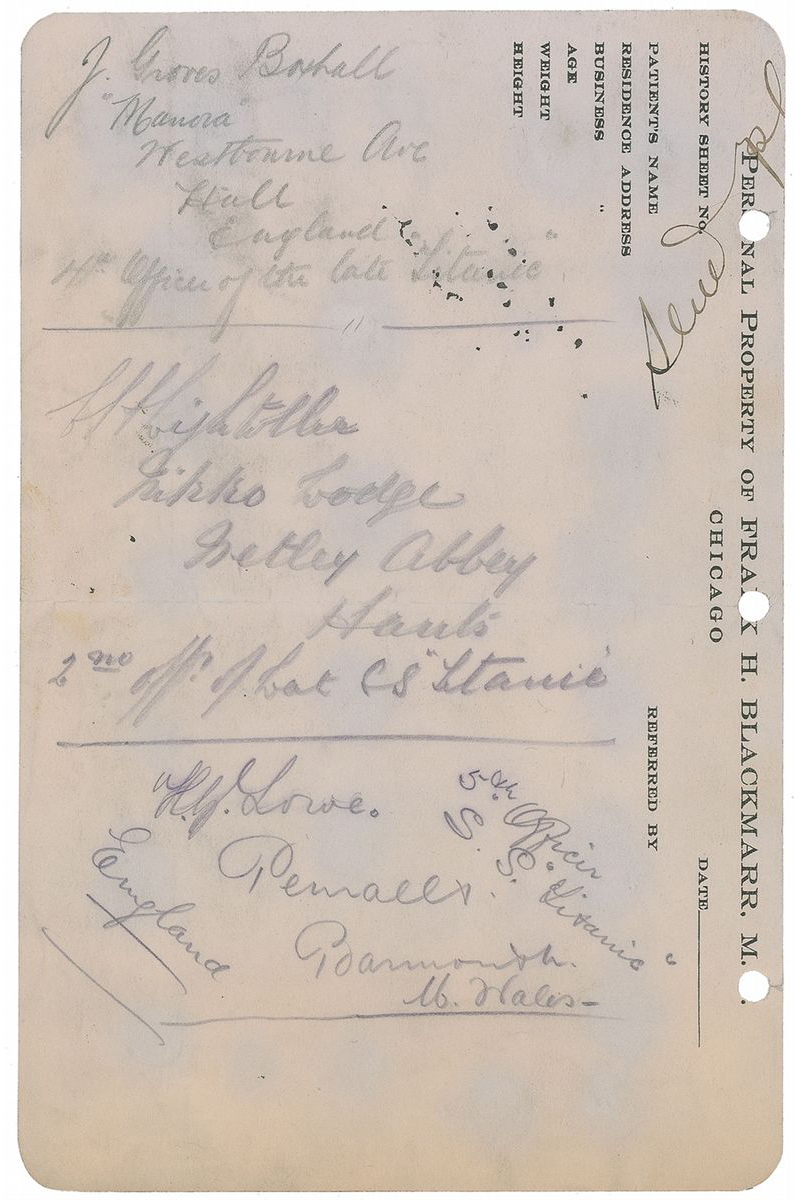 J. Groves Boxhall
"Manora"
Westbourne Ave
Hull
England
4th Officer of the late "Titanic"
Lightoller
Nikko Lodge
Netley Abbey
Hants
2nd offr of late SS "Titanic"
H.G. Lowe.
5th Officer
S.S. "Titanic"
Penrallt.
England
Barmouth.
N. Wales-
PERSONAL PROPERTY OF FRANK H. BLACKMARR. M.
CHICAGO
HISTORY SHEET NO.
DATE
PATIENT'S NAME
REFERRED BY
RESIDENCE ADDRESS
BUSINESS "
AGE
WEIGHT
HEIGHT